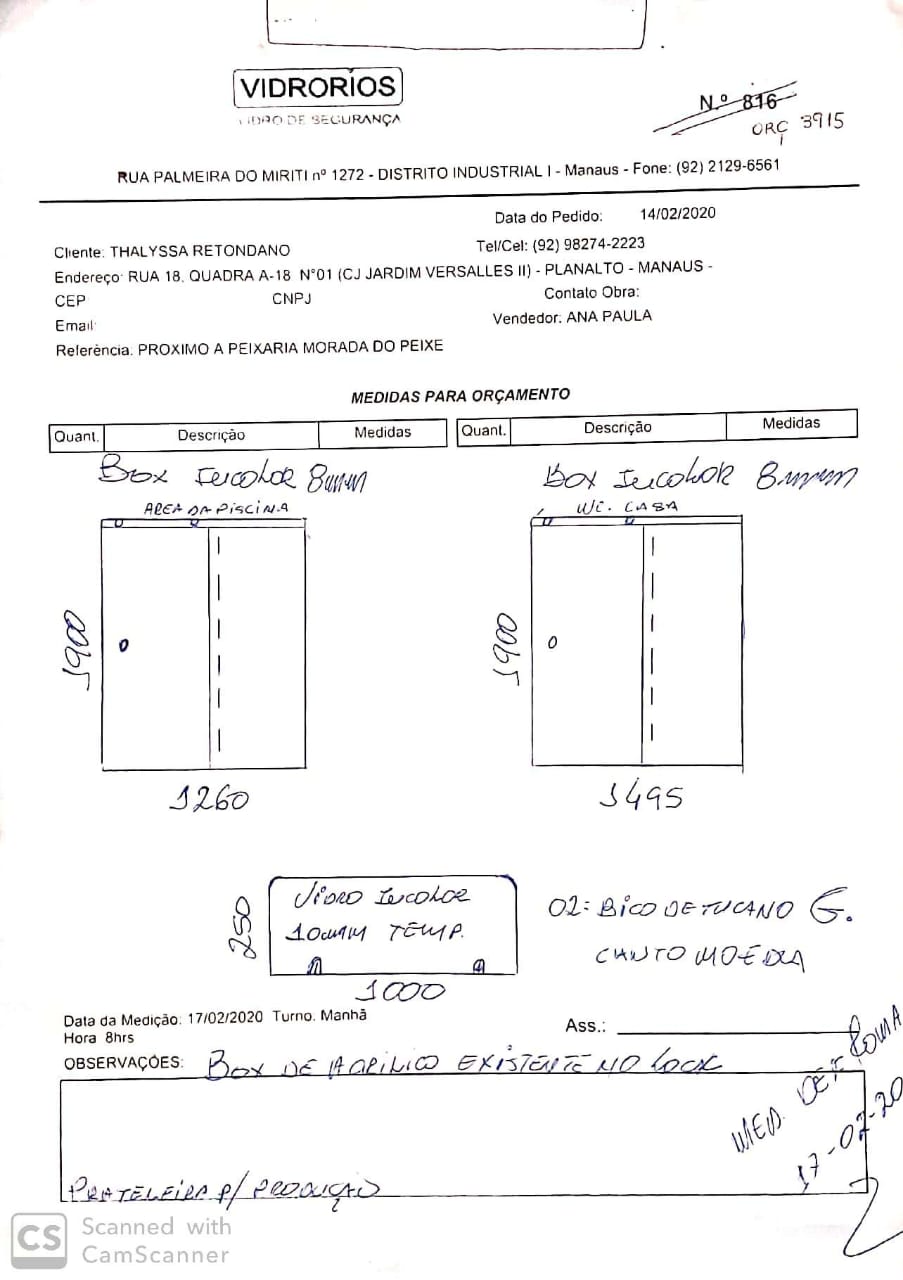 VIDRORIOS
VIDRO DE SEGURANÇA
N.º 816
ORÇ 3915
RUA PALMEIRA DO MIRITI nº 1272 - DISTRITO INDUSTRIAL I - Manaus - Fone: (92) 2129-6561
Data do Pedido: 14/02/2020
Cliente: THALYSSA RETONDANO Tel/Cel: (92) 98274-2223
Endereço: RUA 18, QUADRA A-18 Nº01 (CJ JARDIM VERSALLES II) - PLANALTO - MANAUS -
CEP CNPJ Contato Obra:
Email: Vendedor: ANA PAULA
Referência: PROXIMO A PEIXARIA MORADA DO PEIXE
MEDIDAS PARA ORÇAMENTO
Quant. Descrição Medidas Quant. Descrição Medidas
BOX INCOLOR 8mm BOX INCOLOR 8mm
AREA DA PISCINA WC. CASA
1900 1900
1260 1495
VIDRO INCOLOR
10mm TEMP.
250
1000
02: BICO DE TUCANO G.
CANTO MOEDA
Data da Medição: 17/02/2020 Turno. Manhã
Hora 8hrs
Ass.:
OBSERVAÇÕES: BOX DE ACRILICO EXISTENTE NO LOCAL
MED. DEF. ROMA
17-02-20
PRATELEIRA P/ PRODUÇÃO
CS Scanned with
CamScanner